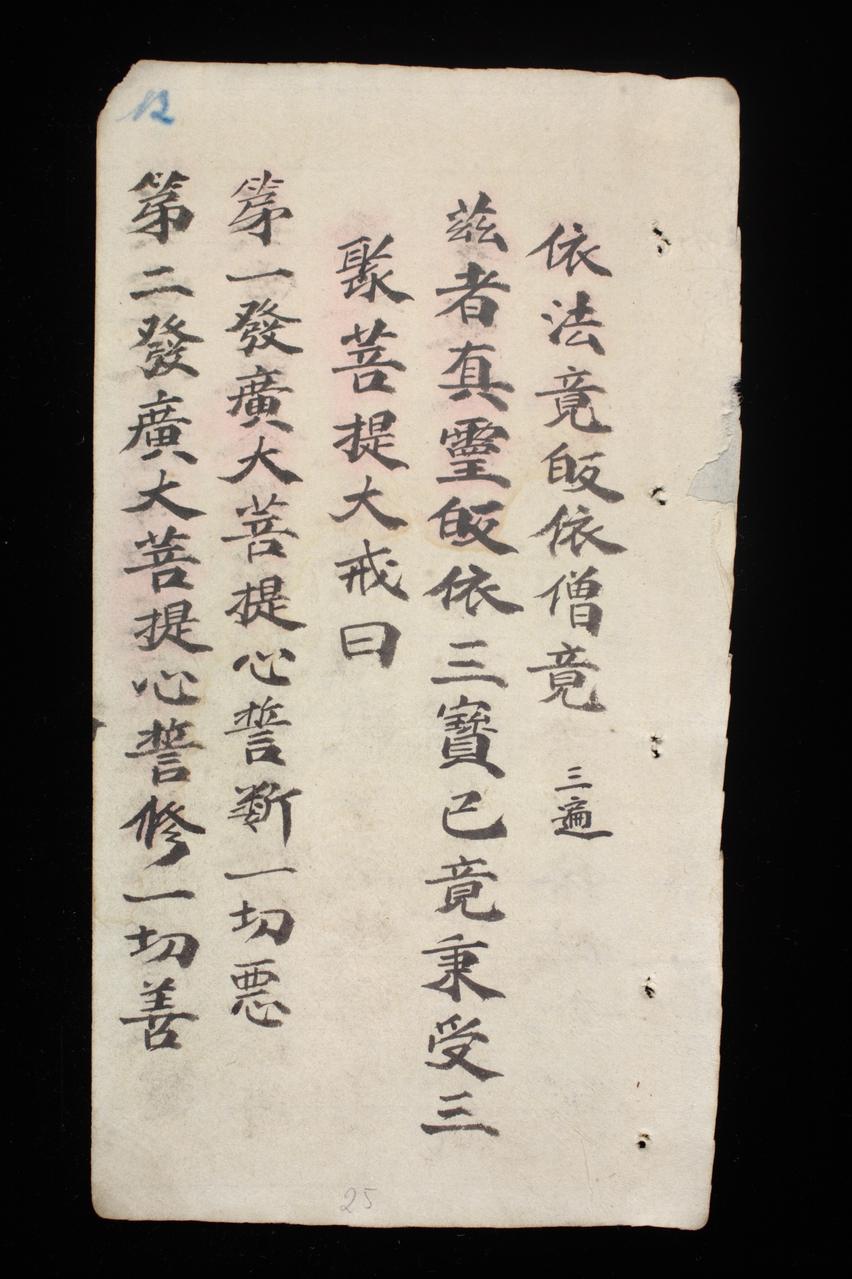 依法竟皈依僧竟 三遍
茲者真靈皈依三寶已竟秉受三
聚菩提大戒曰
第一發廣大菩提心誓斷一切惡
第二發廣大菩提心誓修一切善
12
25